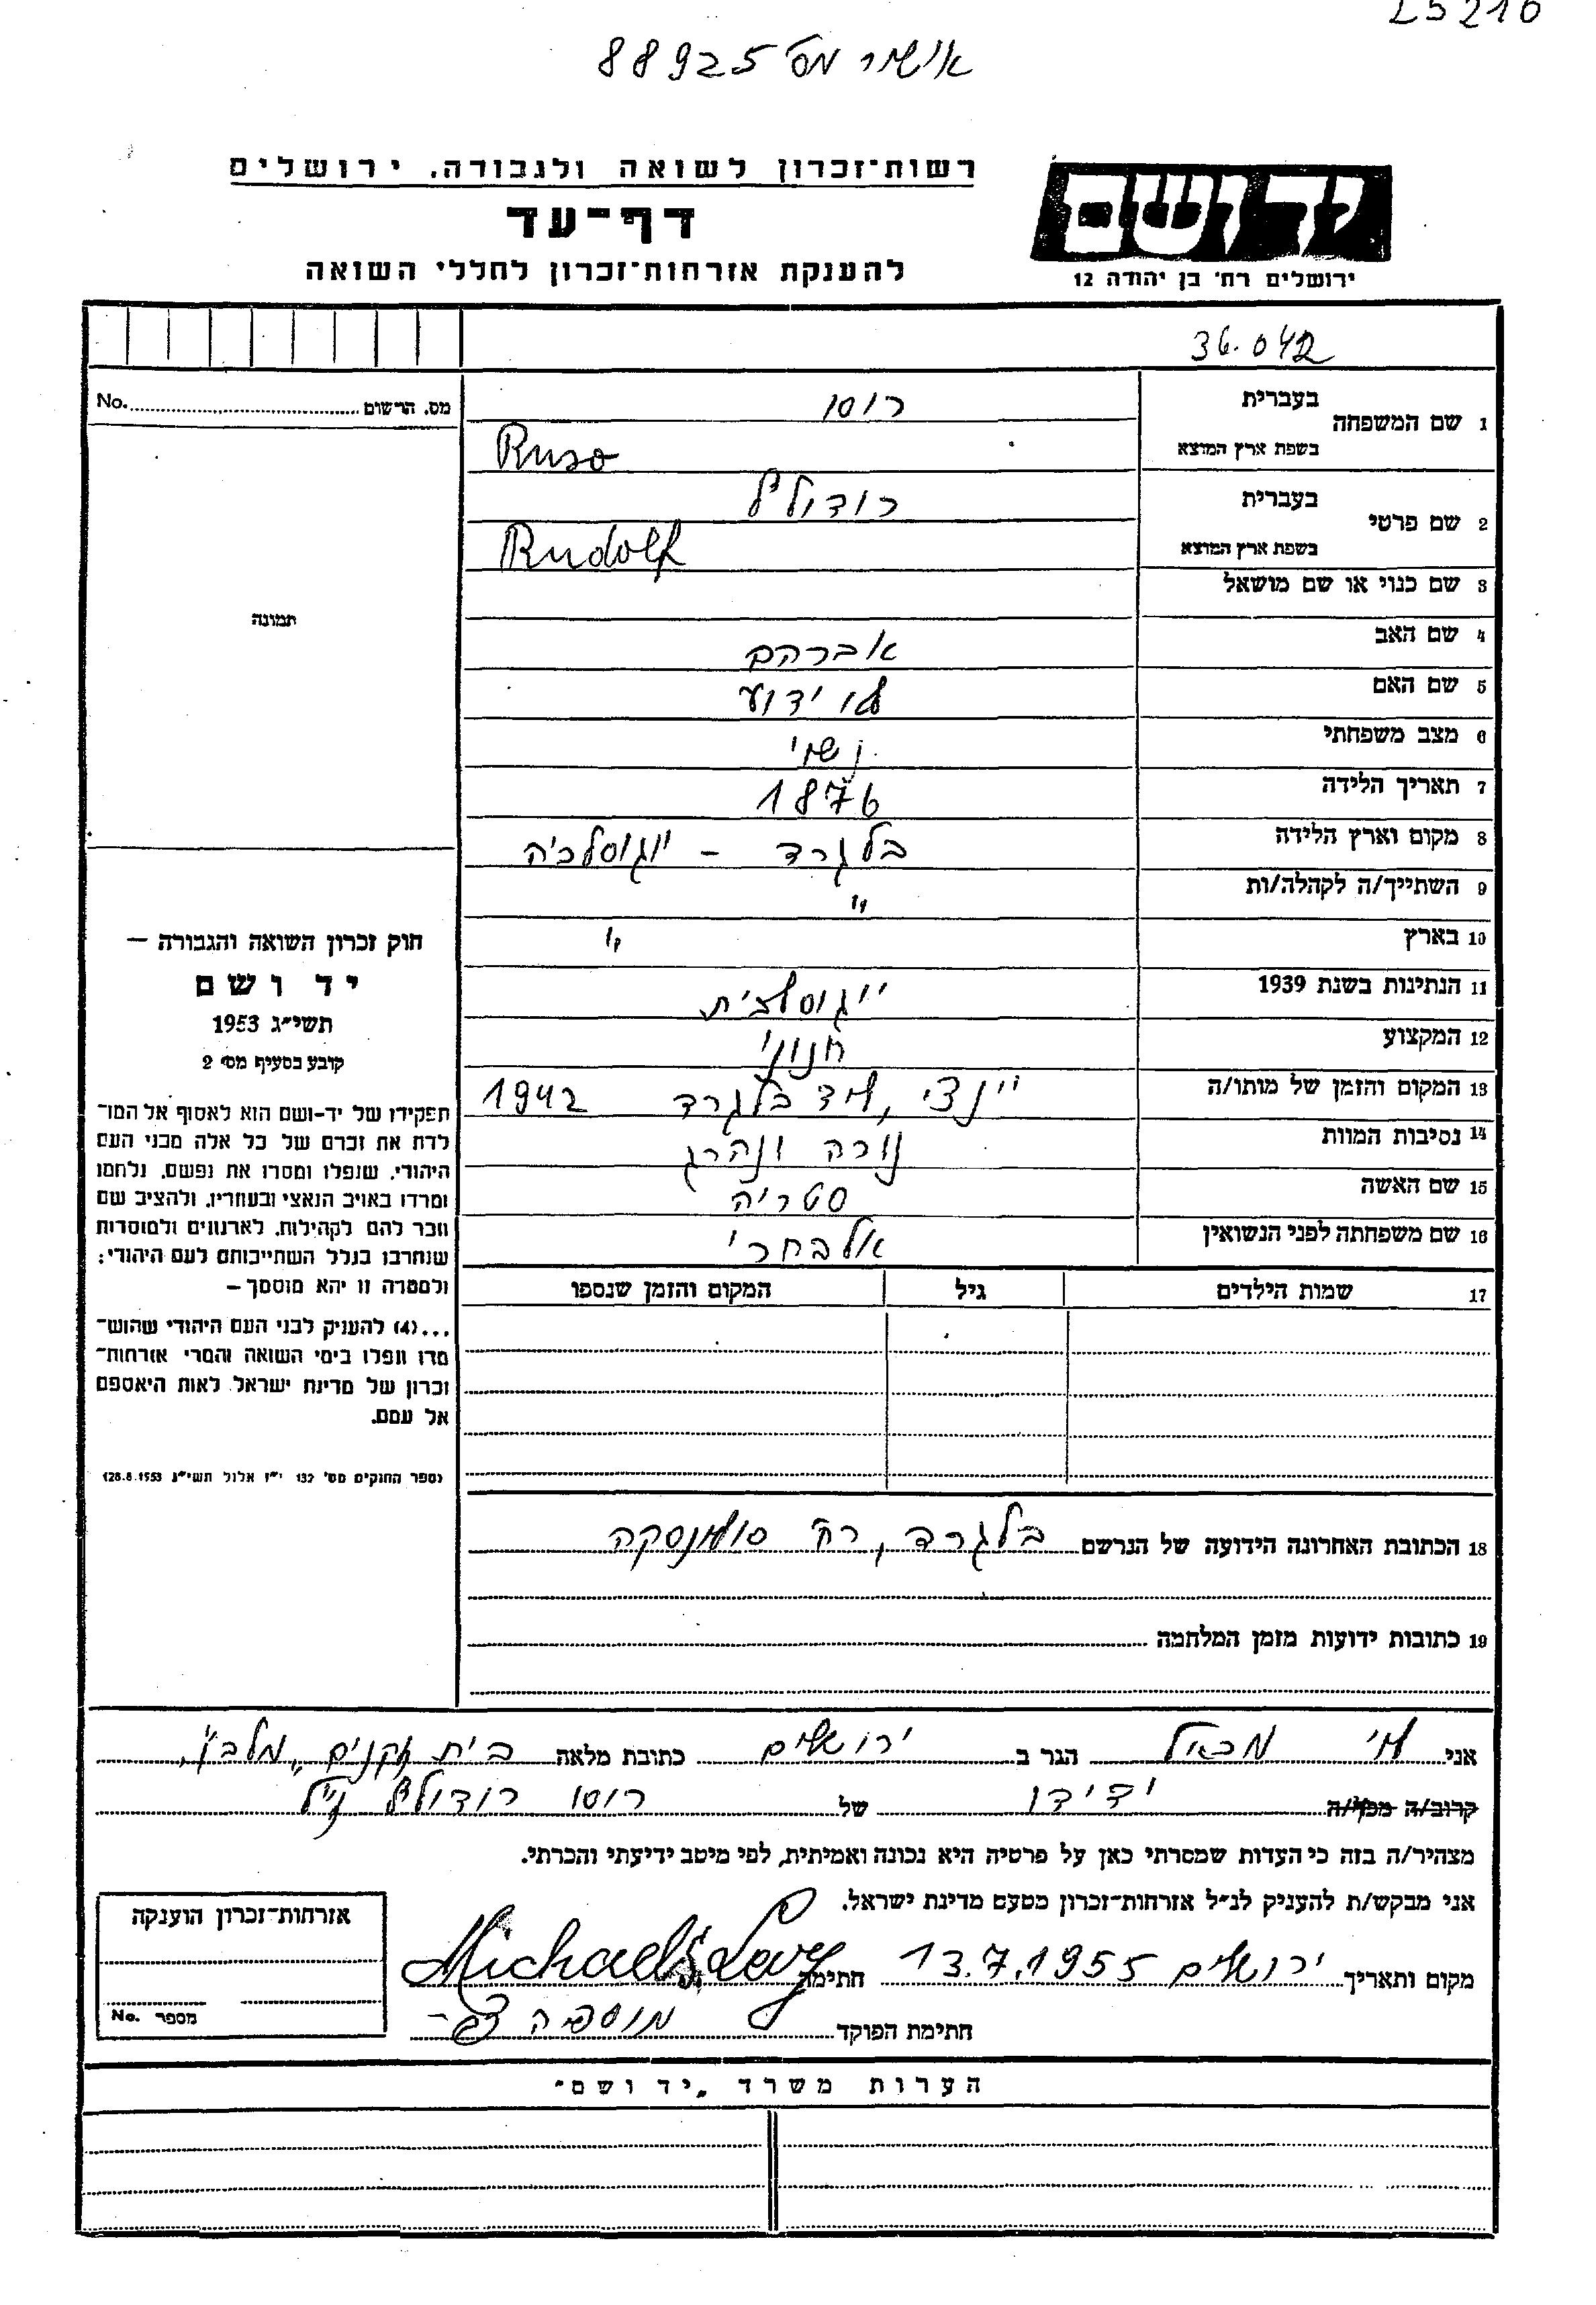 25210
אישור מס' 88925
רשות-זכרון לשואה ולגבורה. ירושלים
דף-עד
להענקת אזרחות-זכרון לחללי השואה
יד ושם
ירושלים רח' בן יהודה 12
36.042
מס. הרשום No.
1 שם המשפחה בעברית רוסו
בשפת ארץ המוצא Ruso
2 שם פרטי בעברית רודולף
בשפת ארץ המוצא Rudolf
3 שם כנוי או שם מושאל
תמונה
4 שם האב אברהם
5 שם האם לא ידוע
6 מצב משפחתי נשוי
7 תאריך הלידה 1876
8 מקום וארץ הלידה בלגרד - יוגוסלביה
9 השתייך/ה לקהלה/ות "
10 בארץ "
11 הנתינות בשנת 1939 יוגוסלבית
12 המקצוע חנוני
13 המקום והזמן של מותו/ה יינצי, ליד בלגרד 1942
14 נסיבות המוות נורה ונהרג
15 שם האשה סטריה
16 שם משפחתה לפני הנשואין אלבחרי
17 שמות הילדים גיל המקום והזמן שנספו
חוק זכרון השואה והגבורה –
יד ושם
תשי"ג 1953
קובע בסעיף מס' 2
תפקידו של יד-ושם הוא לאסוף אל המו־
לדת את זכרם של כל אלה מבני העם
היהודי, שנפלו ומסרו את נפשם, נלחמו
ומרדו באויב הנאצי ובעוזריו, ולהציב שם
וזכר להם לקהילות, לארגונים ולמוסדות
שנחרבו בגלל השתייכותם לעם היהודי;
ולמטרה זו יהא מוסמך –
...(4) להעניק לבני העם היהודי שהוש־
מדו ונפלו בימי השואה והמרי אזרחות־
זכרון של מדינת ישראל לאות היאספם
אל עמם.
(ספר החוקים מס' 132 י"ז אלול תשי"ג 28.8.1953)
18 הכתובת האחרונה הידועה של הנרשם בלגרד, רח' סולונסקה
19 כתובות ידועות מזמן המלחמה
אני לוי מכאל הגר ב ירושלים כתובת מלאה בית זקנים "מלבן",
קרוב/ה מכר/ה ידידו של רוסו רודולף ז"ל
מצהיר/ה בזה כי העדות שמסרתי כאן על פרטיה היא נכונה ואמיתית, לפי מיטב ידיעתי והכרתי.
אני מבקש/ת להעניק לנ"ל אזרחות-זכרון מטעם מדינת ישראל.
מקום ותאריך ירושלים 13.7.1955 חתימה Michael Levy
חתימת הפוקד
אזרחות-זכרון הוענקה
מספר No.
הערות משרד "יד ושם"